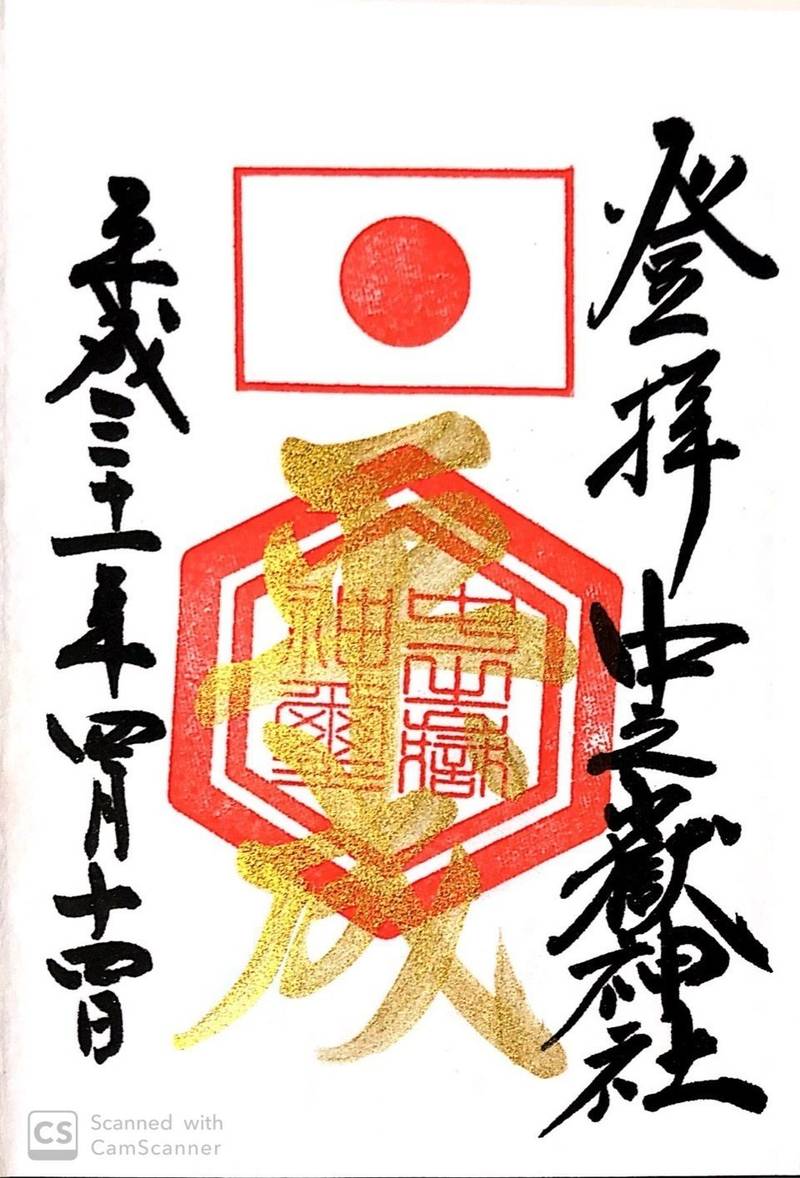 登拝 中之嶽神社
平成
中之嶽神璽
平成三十一年四月十四日
CS Scanned with
CamScanner